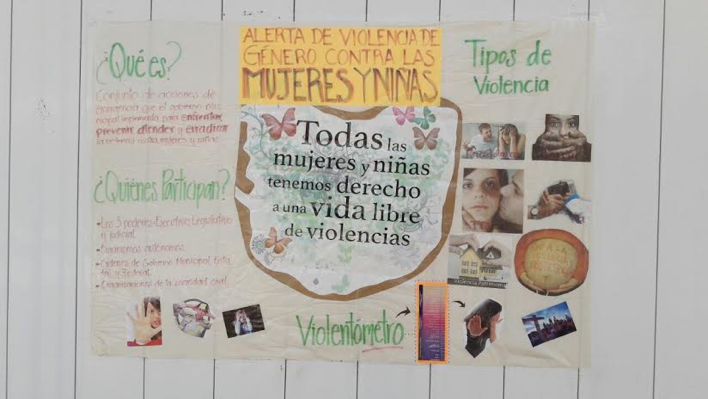 ¿Qué es?
Conjunto de acciones de
emergencia que el gobierno
para enfrentar,
prevenir, atender y erradicar
la violencia contra mujeres y niñas
¿Quiénes Participan?
• Los 3 poderes Ejecutivo Legislativo
y Judicial
• Organismos autónomos
• Órdenes de Gobierno Municipal, Esta
tal y Federal
• Organizaciones de la sociedad civil
ALERTA DE VIOLENCIA DE
GÉNERO CONTRA LAS
MUJERES Y NIÑAS
Todas las
mujeres y niñas
tenemos derecho
a una vida libre
de violencias
Violentómetro
Tipos de
Violencia
Violencia Patrimonial
A LA